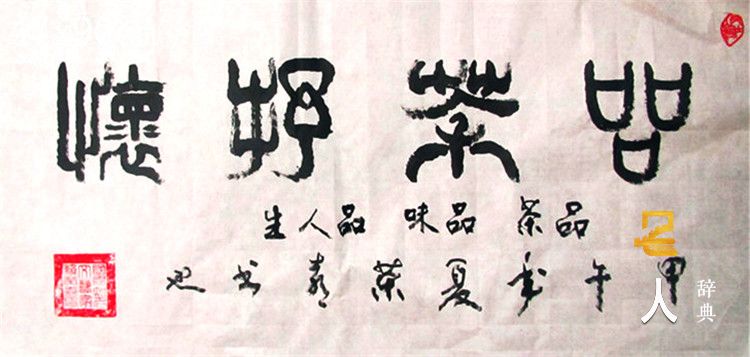 品茶抒懷
品茶 品味 品人生
甲午年夏荣
名人辞典